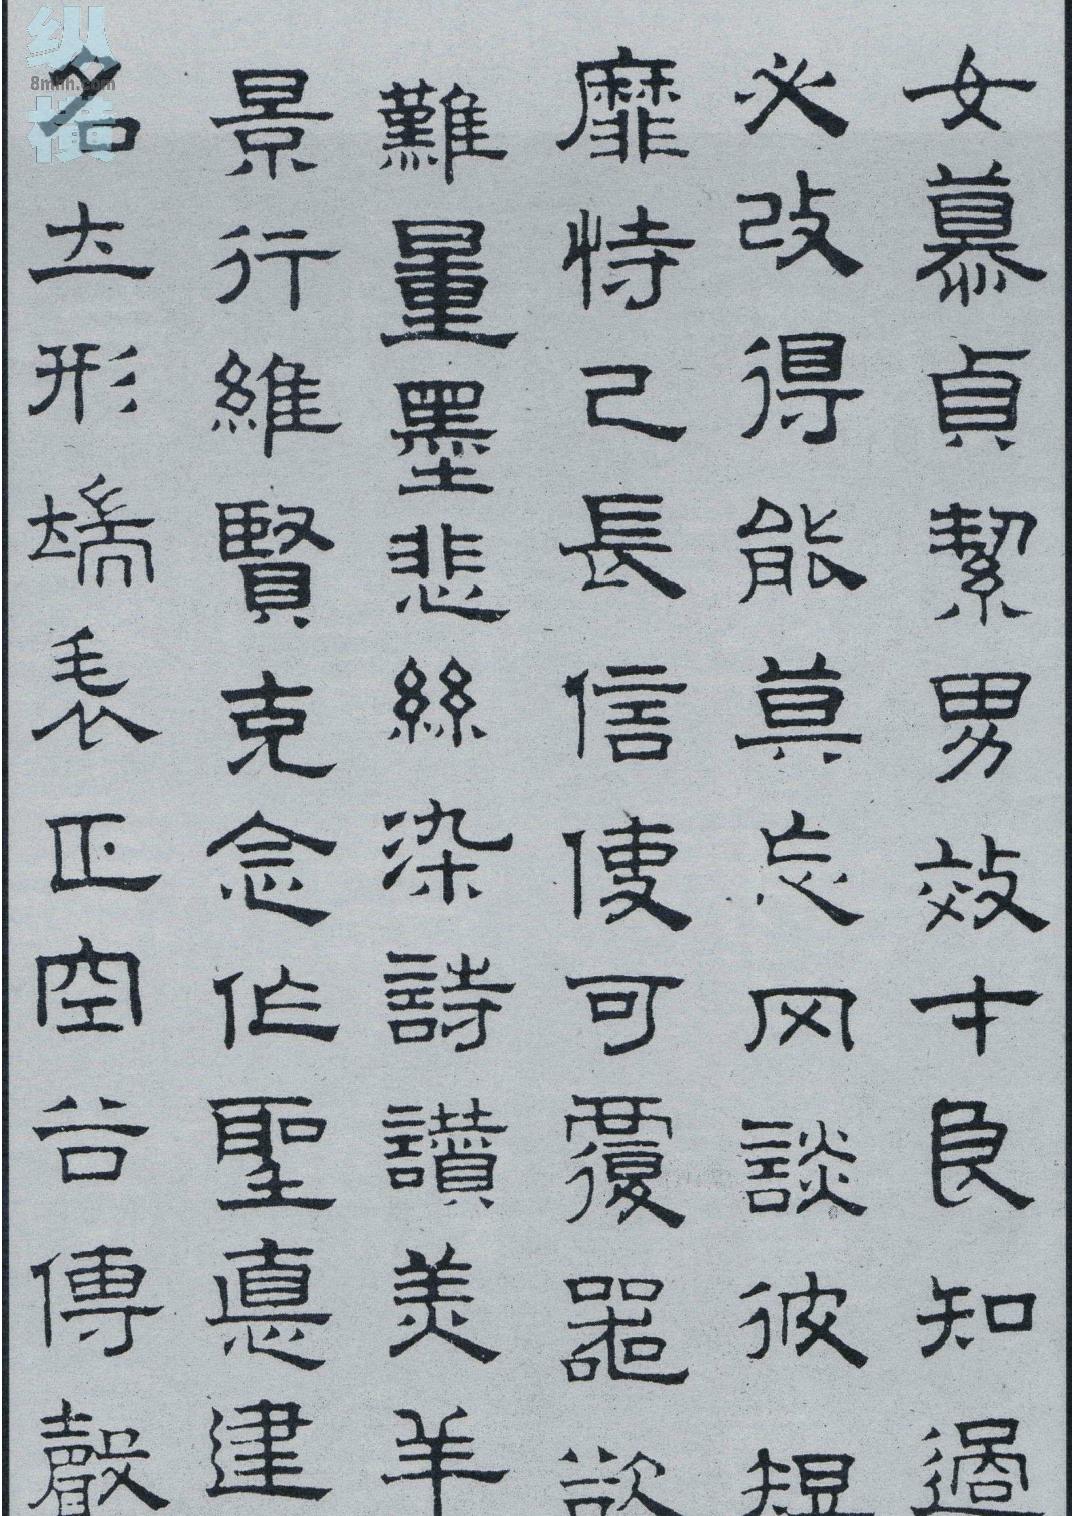 女慕貞絜男效才良知過
必改得能莫忘罔談彼短
靡恃己長信使可覆器欲
難量墨悲絲染詩讚羔羊
景行維賢克念作聖悳建
名立形端表正空谷傳聲
纵横
8mhh.com